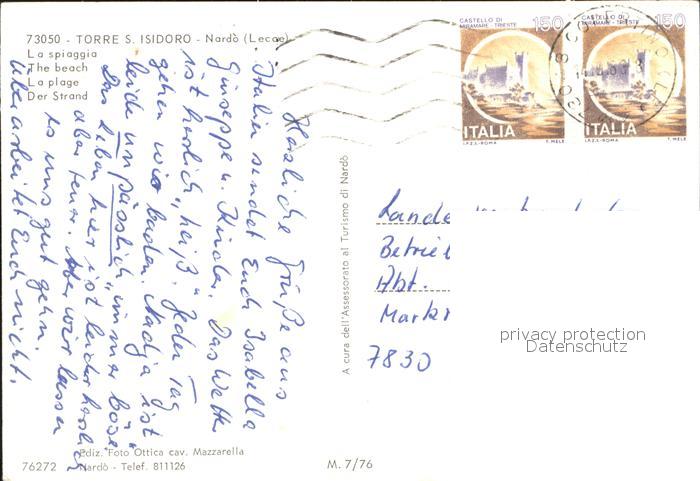 73050 - TORRE S. ISIDORO - Nardò (Lecce)
La spiaggia
The beach
La plage
Der Strand
Herzliche Grüße aus
Italien sendet Euch Isabella
Giuseppe u. Kinder. Das Wetter
ist herrlich „heiß“. Jeden Tag
gehen wir baden. Nadja ist
leide unpässlich „immer böse“
Das Leben hier ist leider herrlich
aber teuer. Aber wir lassen
es uns gut gehn.
Überarbeitet Euch nicht.
Ediz. Foto Ottica cav. Mazzarella
76272 Nardò - Telef. 811126
M. 7/76
A cura dell'Assessorato al Turismo di Nardò
CASTELLO DI
MIRAMARE - TRIESTE
150
ITALIA
I.P.Z.S. - ROMA T. MELE
CASTELLO DI
MIRAMARE - TRIESTE
150
ITALIA
I.P.Z.S. - ROMA T. MELE
Lande
Betrie
Abt.
Markt
7830
privacy protection
Datenschutz